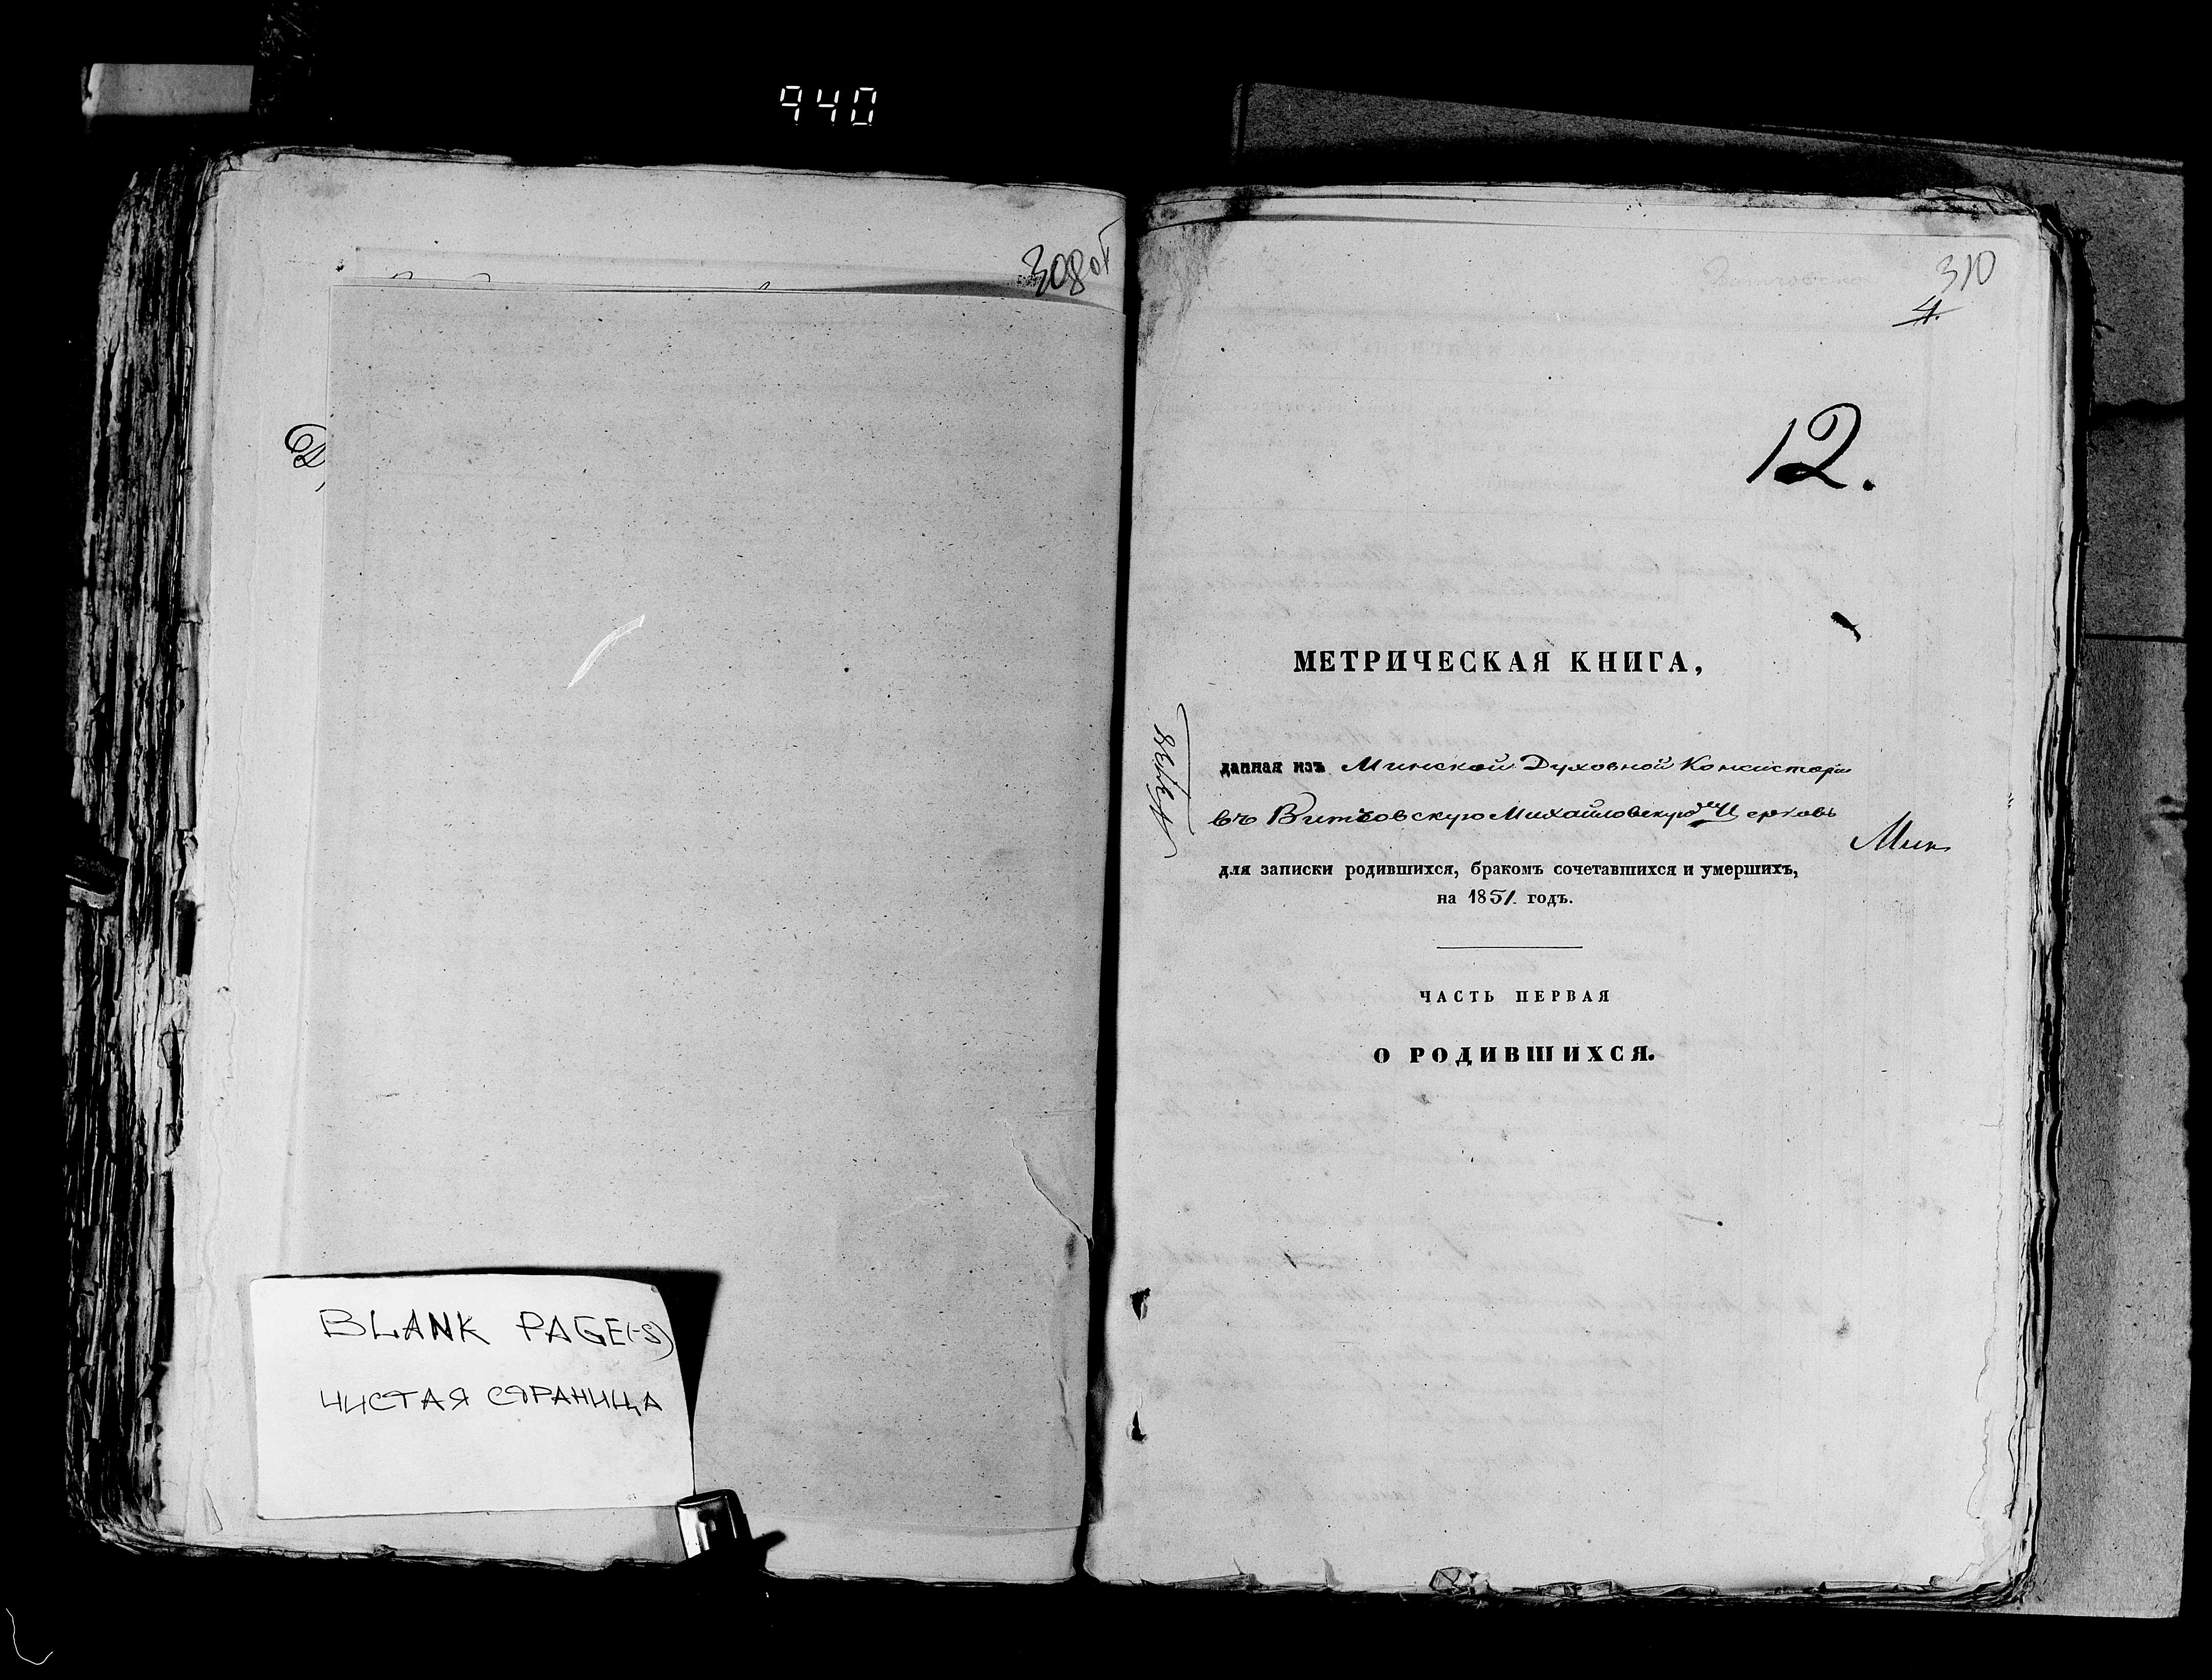 940
308об
BLANK PAGE(-S)
ЧИСТАЯ СТРАНИЦА
310
4.
12.
МЕТРИЧЕСКАЯ КНИГА,
данная изъ Минской Духовной Консисторіи
въ Витковскую Михайловскую Церковь
Мин
для записки родившихся, бракомъ сочетавшихся и умершихъ,
на 1851 годъ.
ЧАСТЬ ПЕРВАЯ
О РОДИВШИХСЯ.